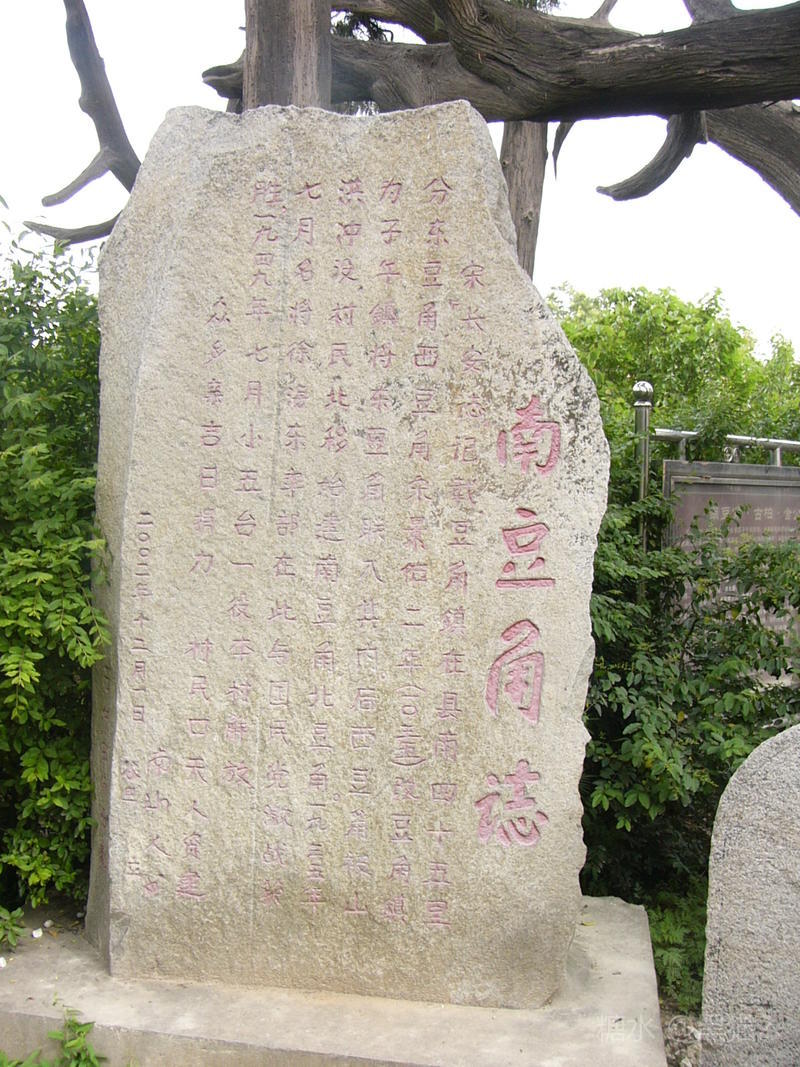 南豆角志
宋长安志记载豆角镇在县南四十五里
分东豆角西豆角宋景佑二年(一〇三五)改豆角镇
为子午镇将东豆角联入其内后西豆角被山
洪冲没村民北移始建南豆角北豆角一九三五年
七月名将徐海东率部在此与国民党激战获
胜一九四九年七月小五台一役本村解放
众乡亲吉日捐力
村民
人
建
二〇〇二年十二月一日